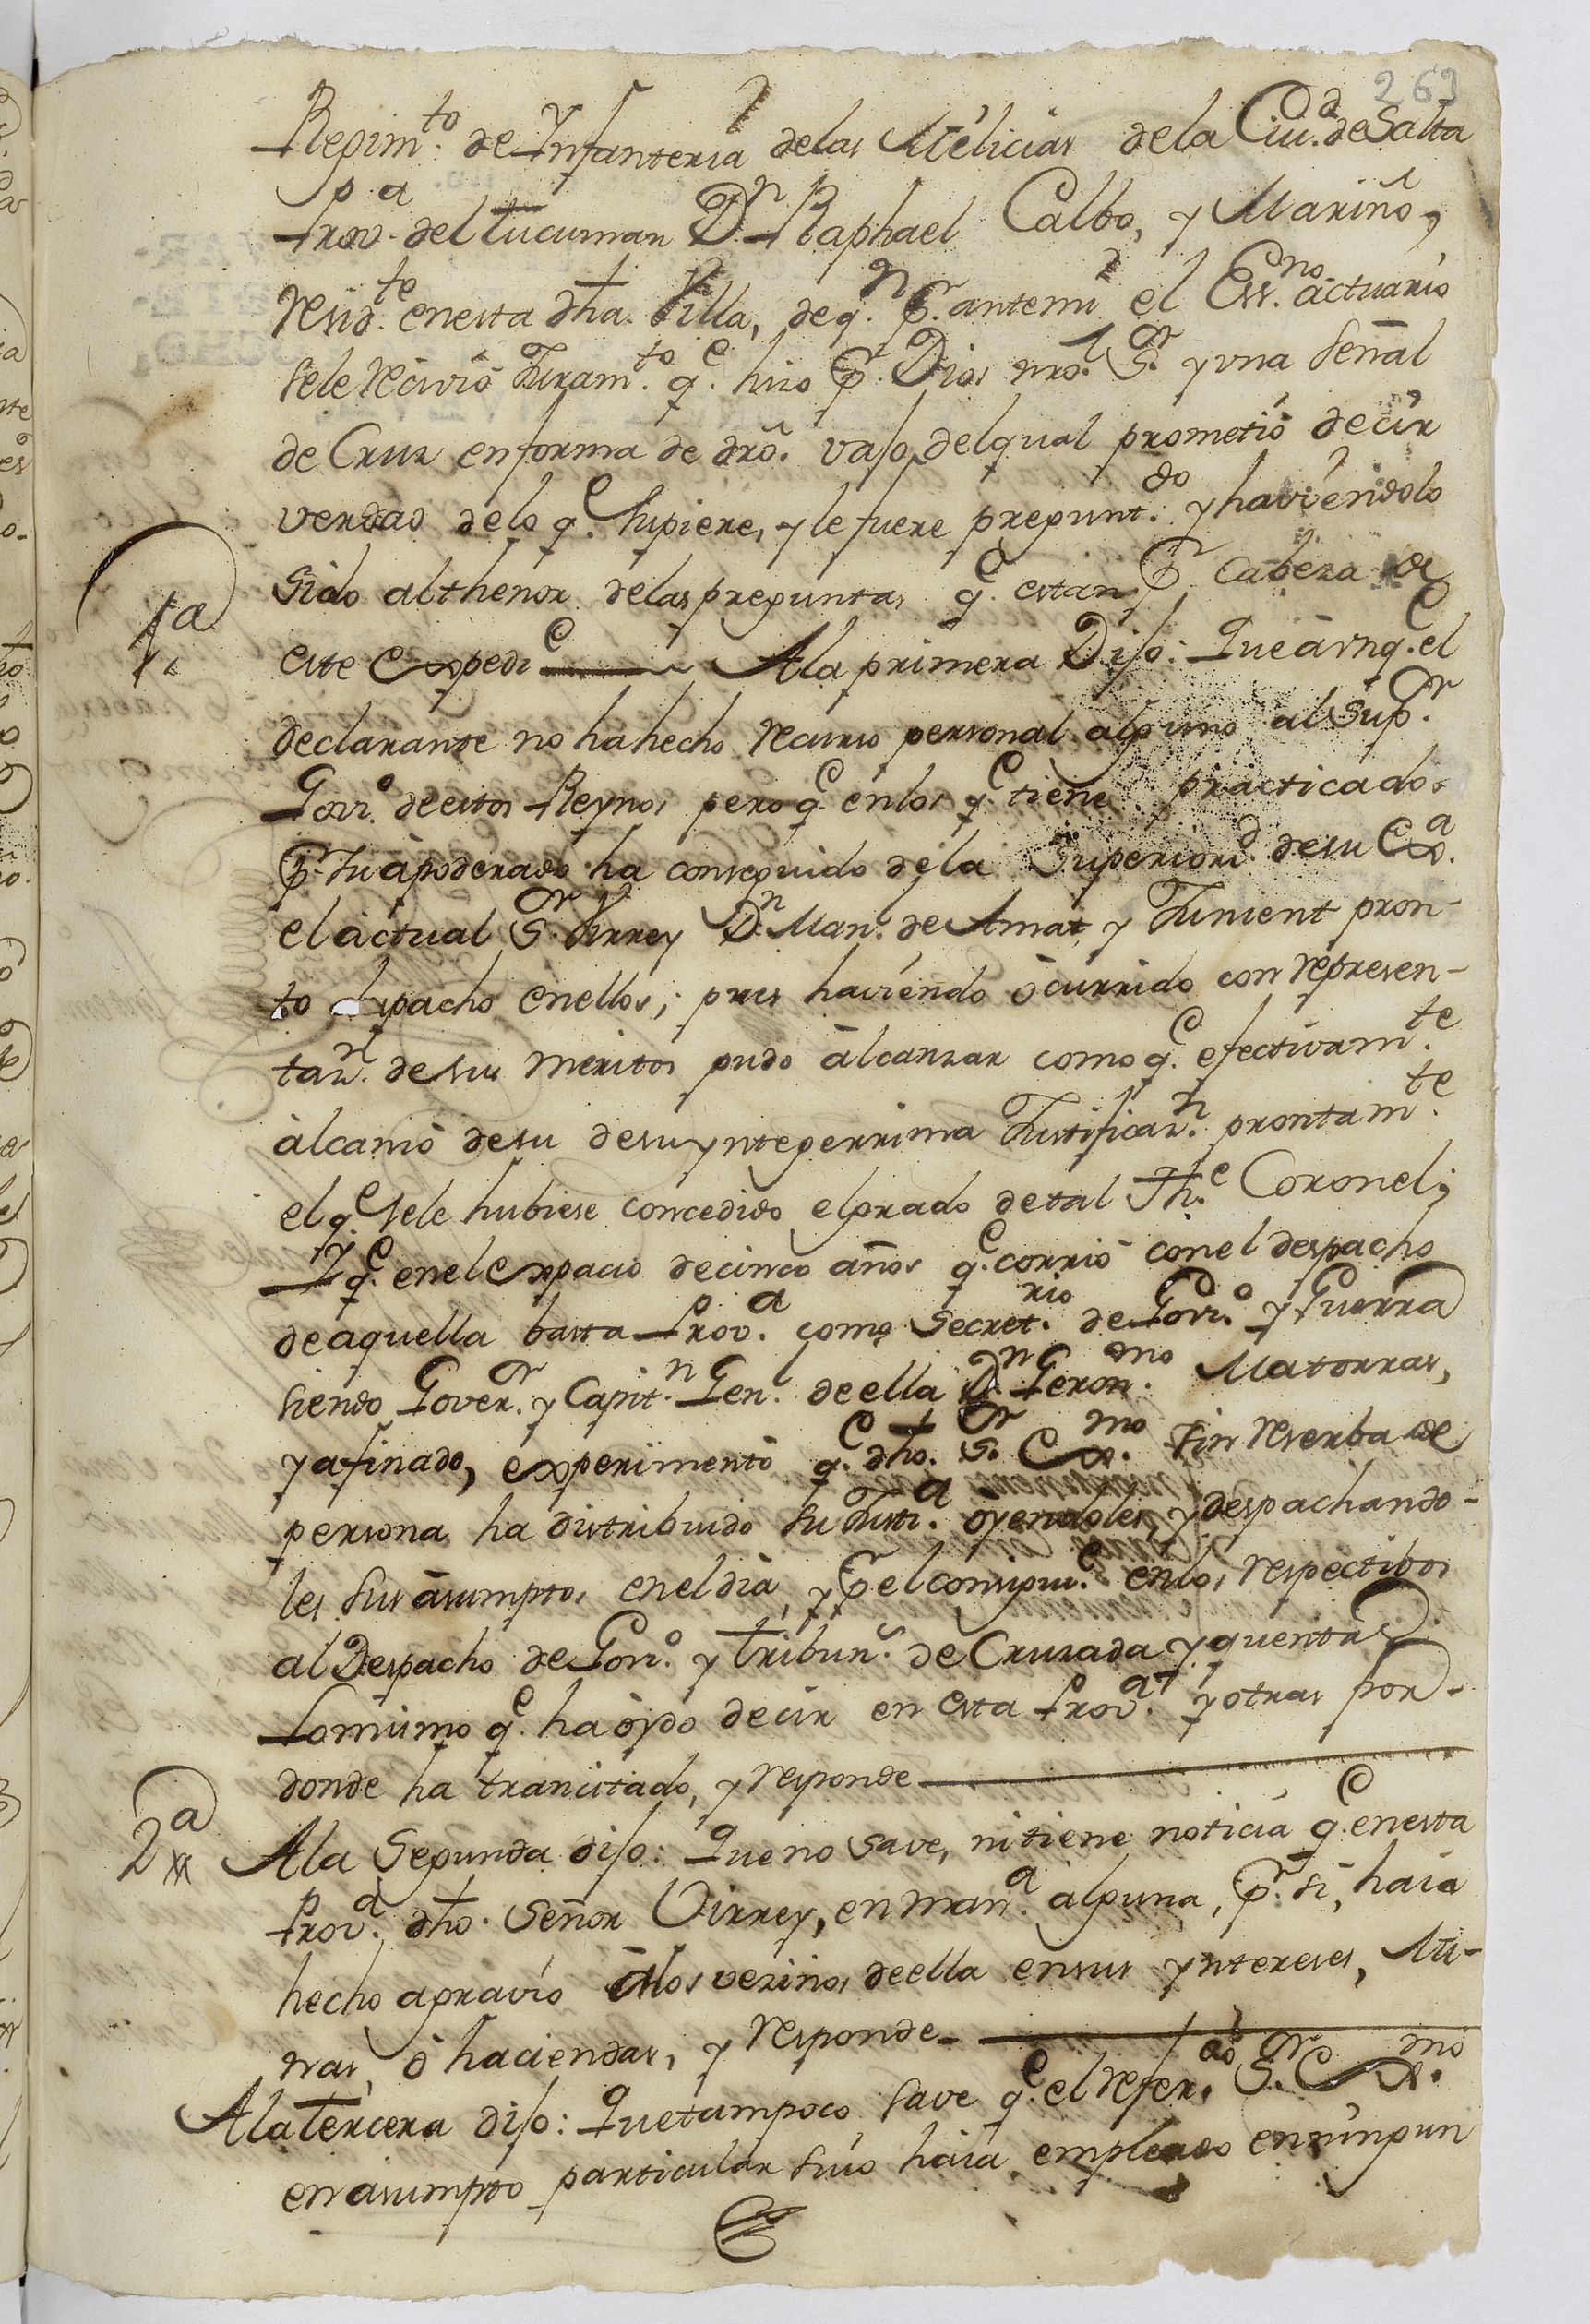 269
Regim.to de Ynfanteria delas Milicias dela Ciu.d de Salta
Prov.a del Tucuman D.n Raphael Calbo, y Mariño,
resid.te enesta dha. Villa, de q.n p.r antemi el Ess.no actuario
sele recivió Juram.to q.e hizo p.r Dios nro. S.r y una señal
de Cruz enforma de dro. vajo delqual prometió decir
verdad delo q.e supiere, y le fuere pregunt.do y haviendolo
sido althenor delas preguntas q.e estan p.r Cabeza de
1.a
este Expedi.e Ala primera Dijo: Que aunq.e el
declarante no ha hecho recurso personal alguno al Sup.r
Govr.o de estos Reynos pero q.e enlos q.e tiene practicados
p.r su apoderado ha conseguido dela Superiori.d desu Ex.a
el actual S.r Virrey D.n Man.l de Amat, y Junient pron-
to despacho enellos; pues haviendo ocurrido con represen-
taz.n desus meritos pudo alcanzar como q.e efectivam.te
alcanzó desu desu ynteperrima Justificaz.n prontam.te
el q.e sele hubiese concedido elgrado detal Th.e Coronel;
Y q.e enel expacio decinco años q.e corrió conel despacho
de aquella basta Prov.a como Secret.rio de Govr.o y Guerra
siendo Gover.r y Capit.n Gen.l de ella D.n Geron.mo Matorras,
ya finado, experimentó q.e dho. S.r Ex.mo sin reserba de
persona ha distribuido su Justi.a oyendoles, y despachando-
les sus asumptos enel dia, y p.r el consigui.e enlos respectibos
al Despacho de Govr.o y tribun.l de Cruzada y quentas.
Lomismo q.e ha oydo decir en esta Prov.a y otras por-
donde ha trancitado, y responde
2.a
Ala Segunda dijo: Que no save, ni tiene noticia q.e enesta
Prov.a dho. Señor Virrey, en man.a alguna, p.r si, haia
hecho agravio alos vezinos deella ensus yntereses, Mi-
nas, ó haciendas, y responde
Ala Tercera dijo: Que tampoco save q.e el refer.do S.r Ex.mo
en asumpto particular suio haia empleado enningun